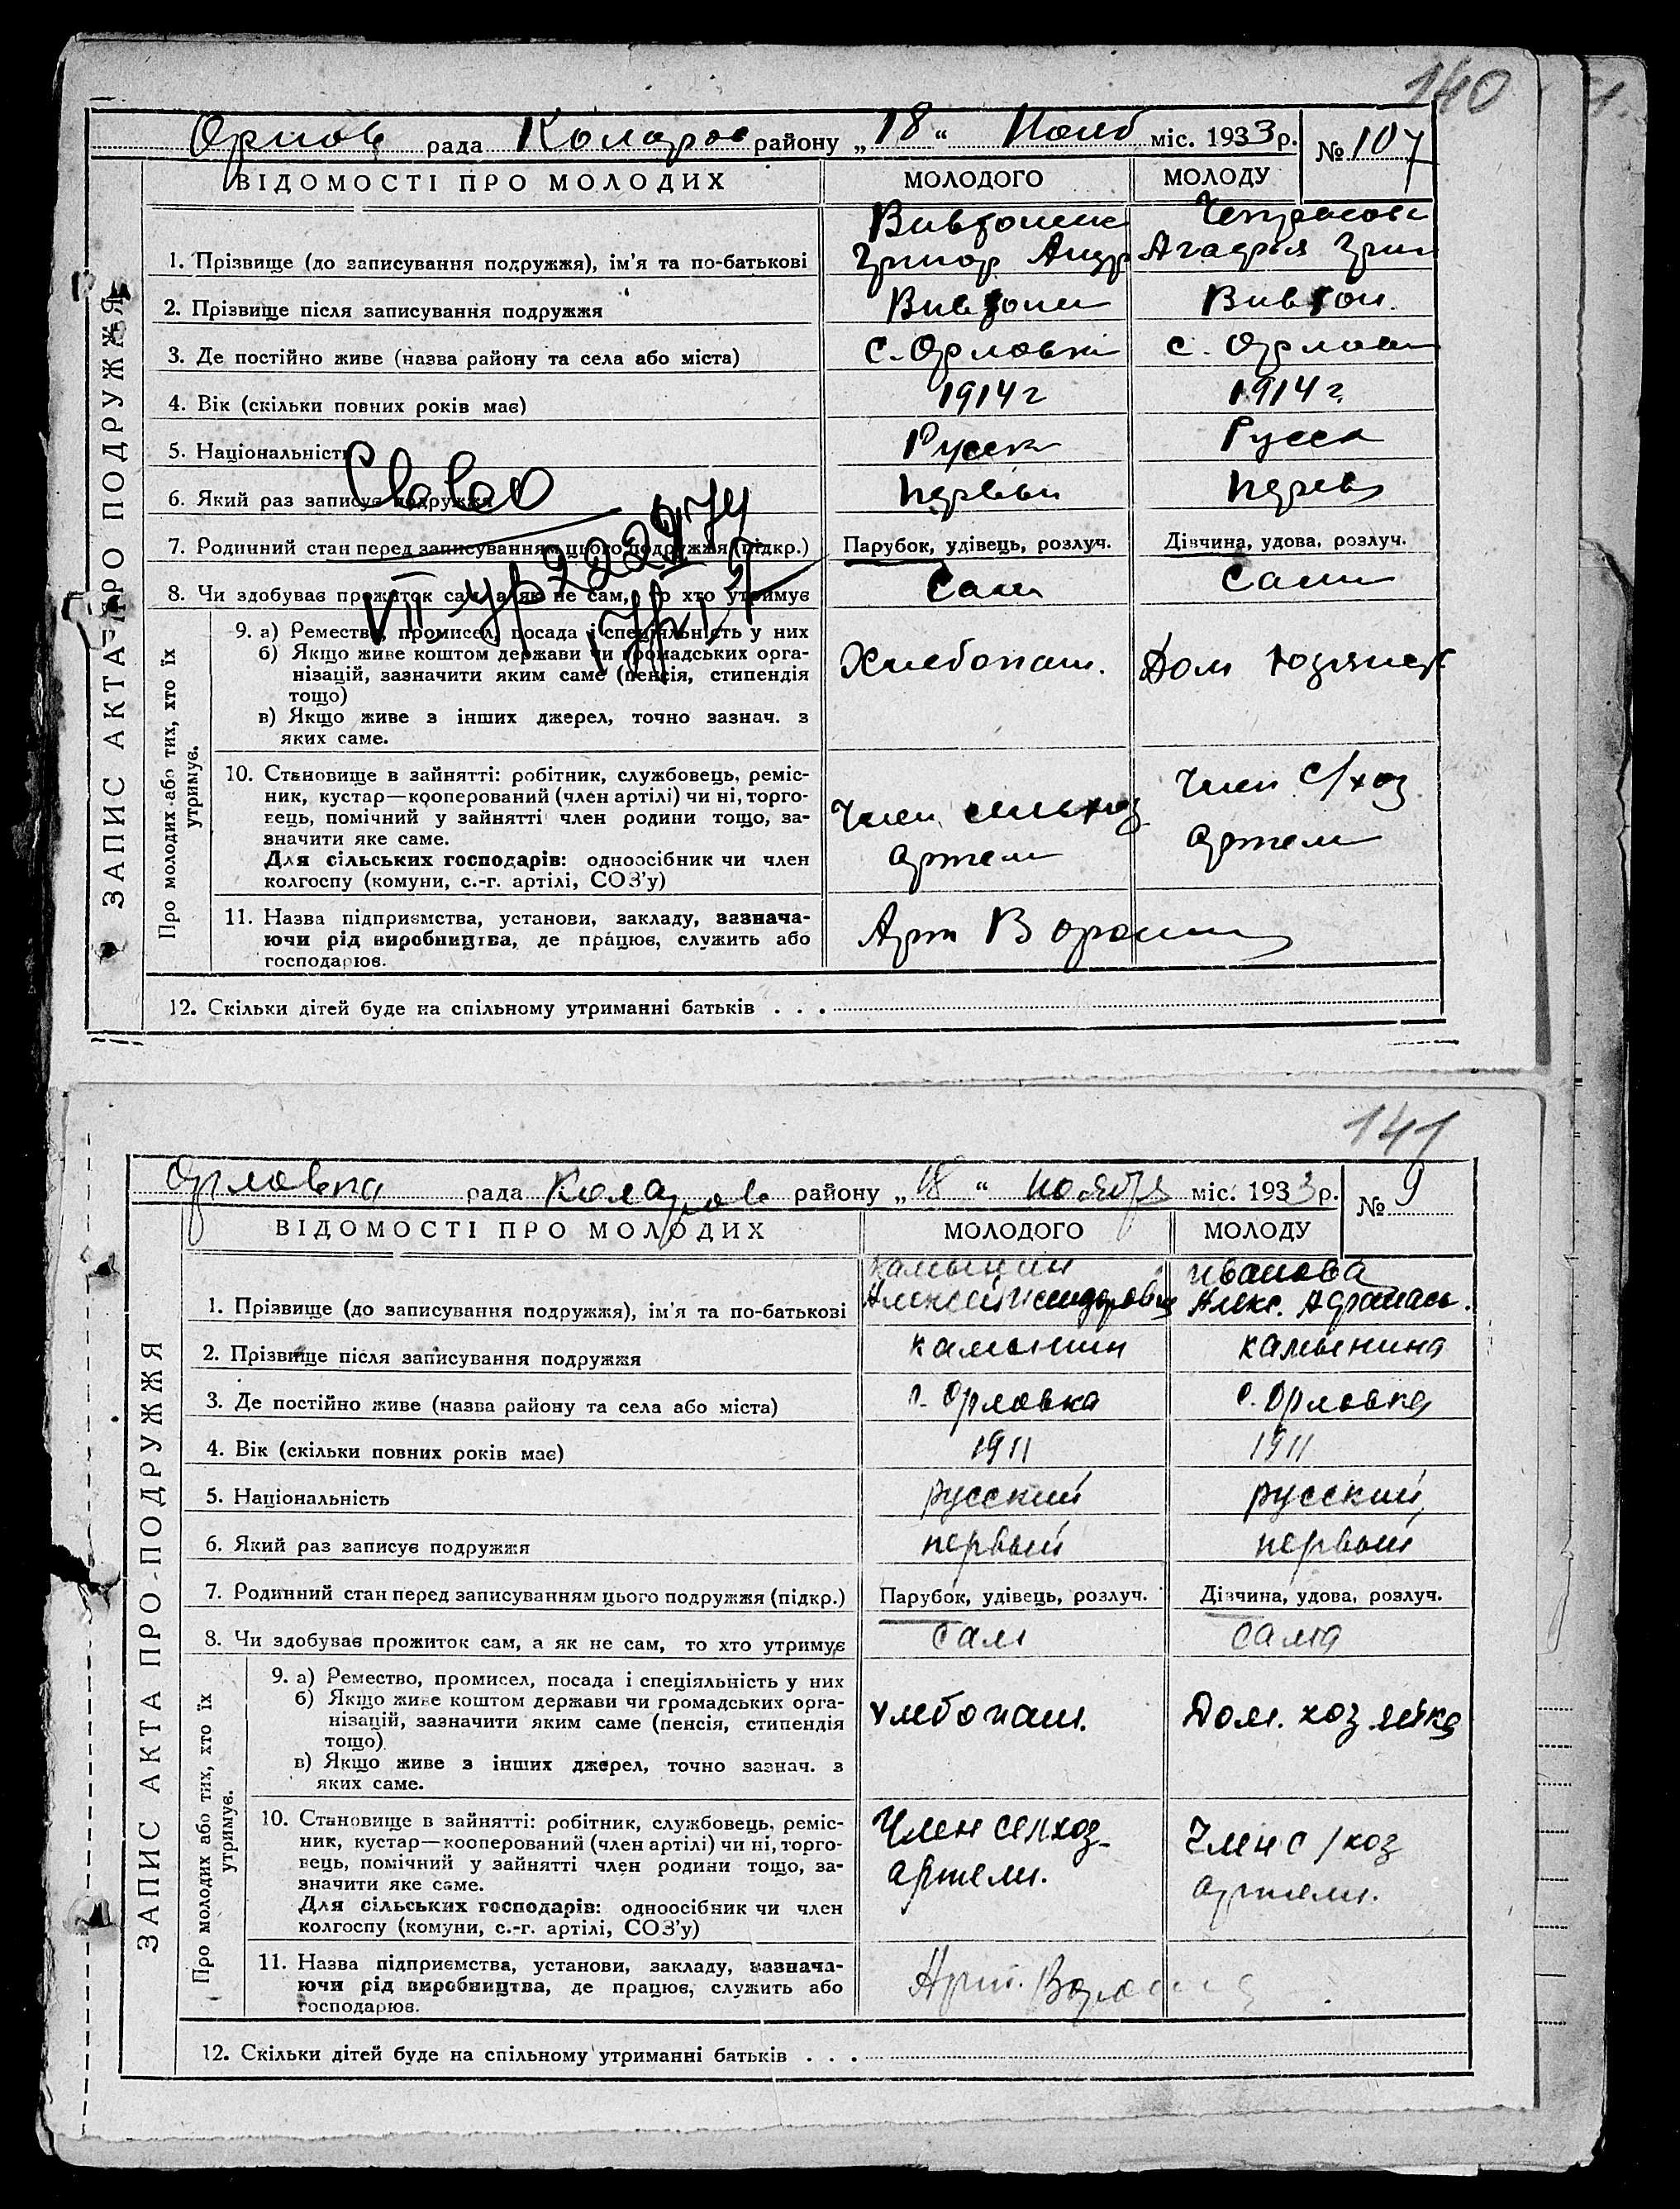 140
Орлов рада Колоров району „18“ Нояб міс. 1933 р. № 107
ВІДОМОСТІ ПРО МОЛОДИХ МОЛОДОГО МОЛОДУ
ЗАПИС АКТА ПРО ПОДРУЖЖЯ
1. Прізвище (до записування подружжя), ім'я та по-батькові
Григор Андр
Агафья Григ
2. Прізвище після записування подружжя
3. Де постійно живе (назва району та села або міста) с. Орловка с. Орловк
4. Вік (скільки повних років має) 1914 г 1914 г.
5. Національність Русск Русск
6. Який раз записує подружжя первый первы
7. Родинний стан перед записуванням цього подружжя (підкр.) Парубок, удівець, розлуч. Дівчина, удова, розлуч.
8. Чи здобуває прожиток сам, а як не сам, то хто утримує Сам Сама
Про молодих або тих, хто їх утримує.
9. а) Ремество, промисел, посада і спеціяльність у них
б) Якщо живе коштом держави чи громадських орга-
нізацій, зазначити яким саме (пенсія, стипендія
тощо)
в) Якщо живе з інших джерел, точно зазнач. з
яких саме.
Хлебопаш. Дом хозяйк
10. Становище в зайнятті: робітник, службовець, реміс-
ник, кустар—кооперований (член артілі) чи ні, торго-
вець, помічний у зайнятті член родини тощо, за-
значити яке саме.
Для сільських господарів: одноосібник чи член
колгоспу (комуни, с.-г. артілі, СОЗ'у)
Член сельхоз
артели
Член С/хоз
артели
11. Назва підприємства, установи, закладу, зазнача-
ючи рід виробництва, де працює, служить або
господарює.
Арт
12. Скільки дітей буде на спільному утриманні батьків . . .
141
Орловка рада Коларов району „18“ ноября міс. 1933 р. № 9
ВІДОМОСТІ ПРО МОЛОДИХ МОЛОДОГО МОЛОДУ
ЗАПИС АКТА ПРО ПОДРУЖЖЯ
1. Прізвище (до записування подружжя), ім'я та по-батькові
Камынин
Алексей Исидорович
Иванова
Алекс. Афанась.
2. Прізвище після записування подружжя Камынин Камынина
3. Де постійно живе (назва району та села або міста) с. Орловка с. Орловка
4. Вік (скільки повних років має) 1911 1911
5. Національність русский русский
6. Який раз записує подружжя первый первый
7. Родинний стан перед записуванням цього подружжя (підкр.) Парубок, удівець, розлуч. Дівчина, удова, розлуч.
8. Чи здобуває прожиток сам, а як не сам, то хто утримує сам сама
Про молодих або тих, хто їх утримує.
9. а) Ремество, промисел, посада і спеціяльність у них
б) Якщо живе коштом держави чи громадських орга-
нізацій, зазначити яким саме (пенсія, стипендія
тощо)
в) Якщо живе з інших джерел, точно зазнач. з
яких саме.
хлебопаш. Дом. хозяйка
10. Становище в зайнятті: робітник, службовець, реміс-
ник, кустар—кооперований (член артілі) чи ні, торго-
вець, помічний у зайнятті член родини тощо, за-
значити яке саме.
Для сільських господарів: одноосібник чи член
колгоспу (комуни, с.-г. артілі, СОЗ'у)
Член селхоз-
артели.
Член с/хоз
артели.
11. Назва підприємства, установи, закладу, зазнача-
ючи рід виробництва, де працює, служить або
господарює.
Арт.
12. Скільки дітей буде на спільному утриманні батьків . . .